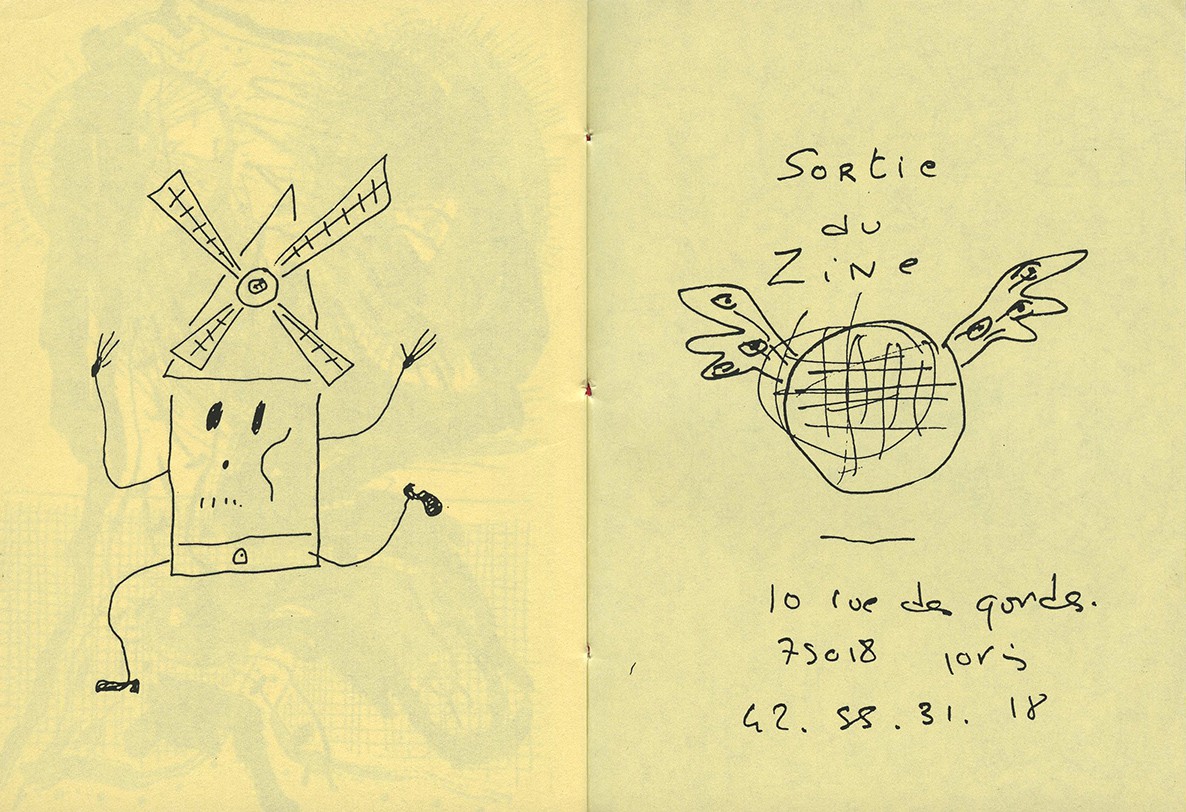 Sortie
du
Zine
10 rue des gardes.
75018 paris
42. 55. 31. 18